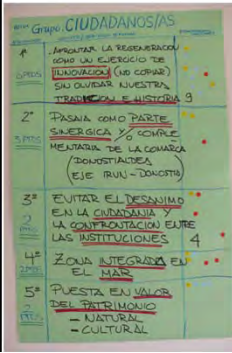 Grupo CIUDADANOS/AS
1º
AFRONTAR LA REGENERACION
COMO UN EJERCICIO DE
INNOVACION (NO COPIAR)
SIN OLVIDAR NUESTRA
TRADICION E HISTORIA 9
2º
PASAIA COMO PARTE
SINERGICA Y/O COMPLE
MENTARIA DE LA COMARCA
(DONOSTIALDEA
EJE IRUN-DONOSTIA)
3º
EVITAR EL DESANIMO
EN LA CIUDADANIA Y
LA CONFRONTACION ENTRE
LAS INSTITUCIONES 4
4º
ZONA INTEGRADA EN
EL MAR
5º
PUESTA EN VALOR
DEL PATRIMONIO
- NATURAL
- CULTURAL